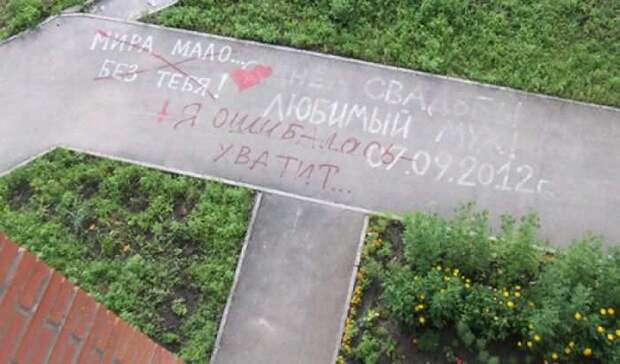 МИРА МАЛО...
БЕЗ ТЕБЯ!
СВАДЬБЫ
ЛЮБИМЫЙ МУЖ!
07.09.2012 г.
Я ОШИБАЛАСЬ
ХВАТИТ...